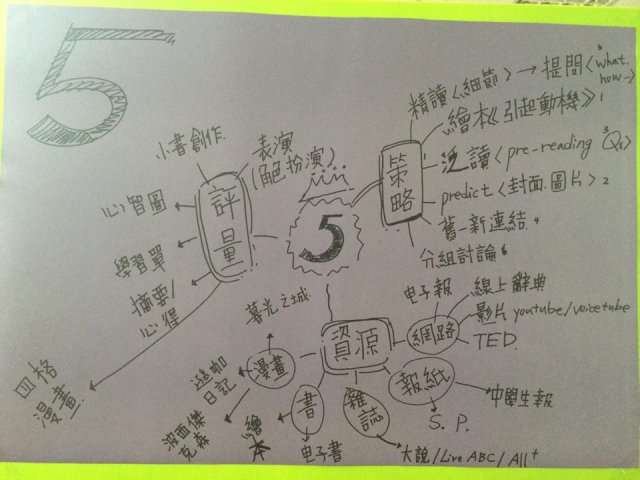 5
小書創作
表演
(角色扮演)
心智圖
學習單
摘要/
心得
四格
漫畫
評量
5
策略
精讀<細節> → 提問<what.
how
繪本《引起動機》1
泛讀<pre-reading Qs>
predict<封面.圖片>2
舊-新連結.4
分組討論6
資源
網路
電子報
線上辭典
影片 youtube/voicetube
TED.
報紙
中學生報
S. P.
雜誌
大說/Live ABC/All+
書
電子書
繪本
漫畫
暮光之城
遜咖
日記
波西傑
克森